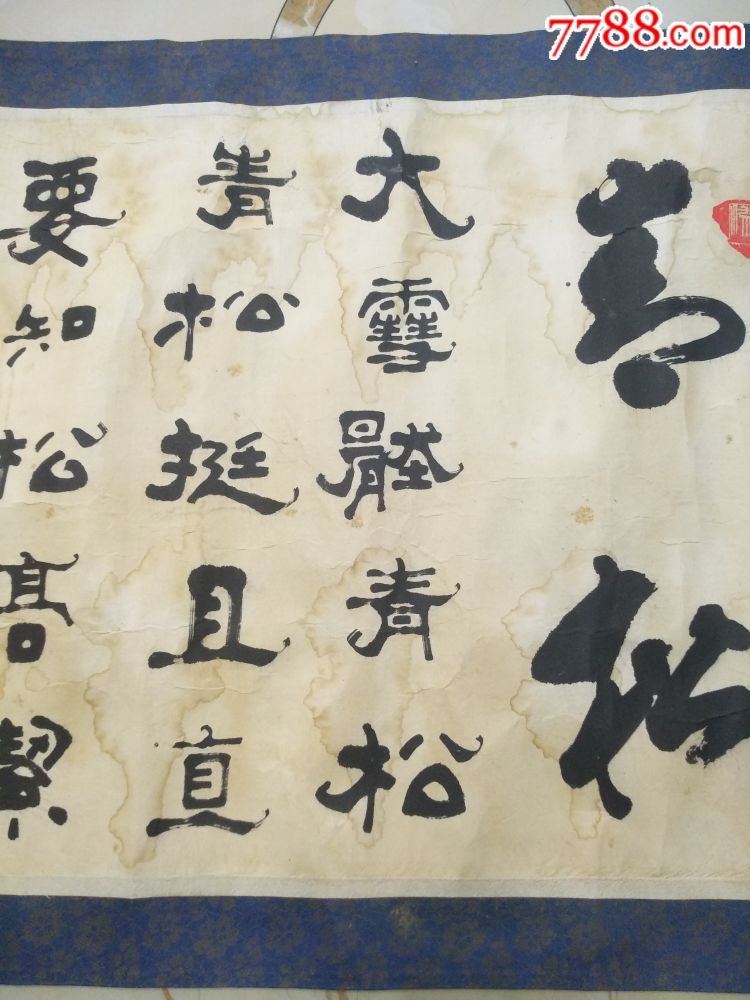 7788.com
青松
大雪壓青松
青松挺且直
要知松高絜